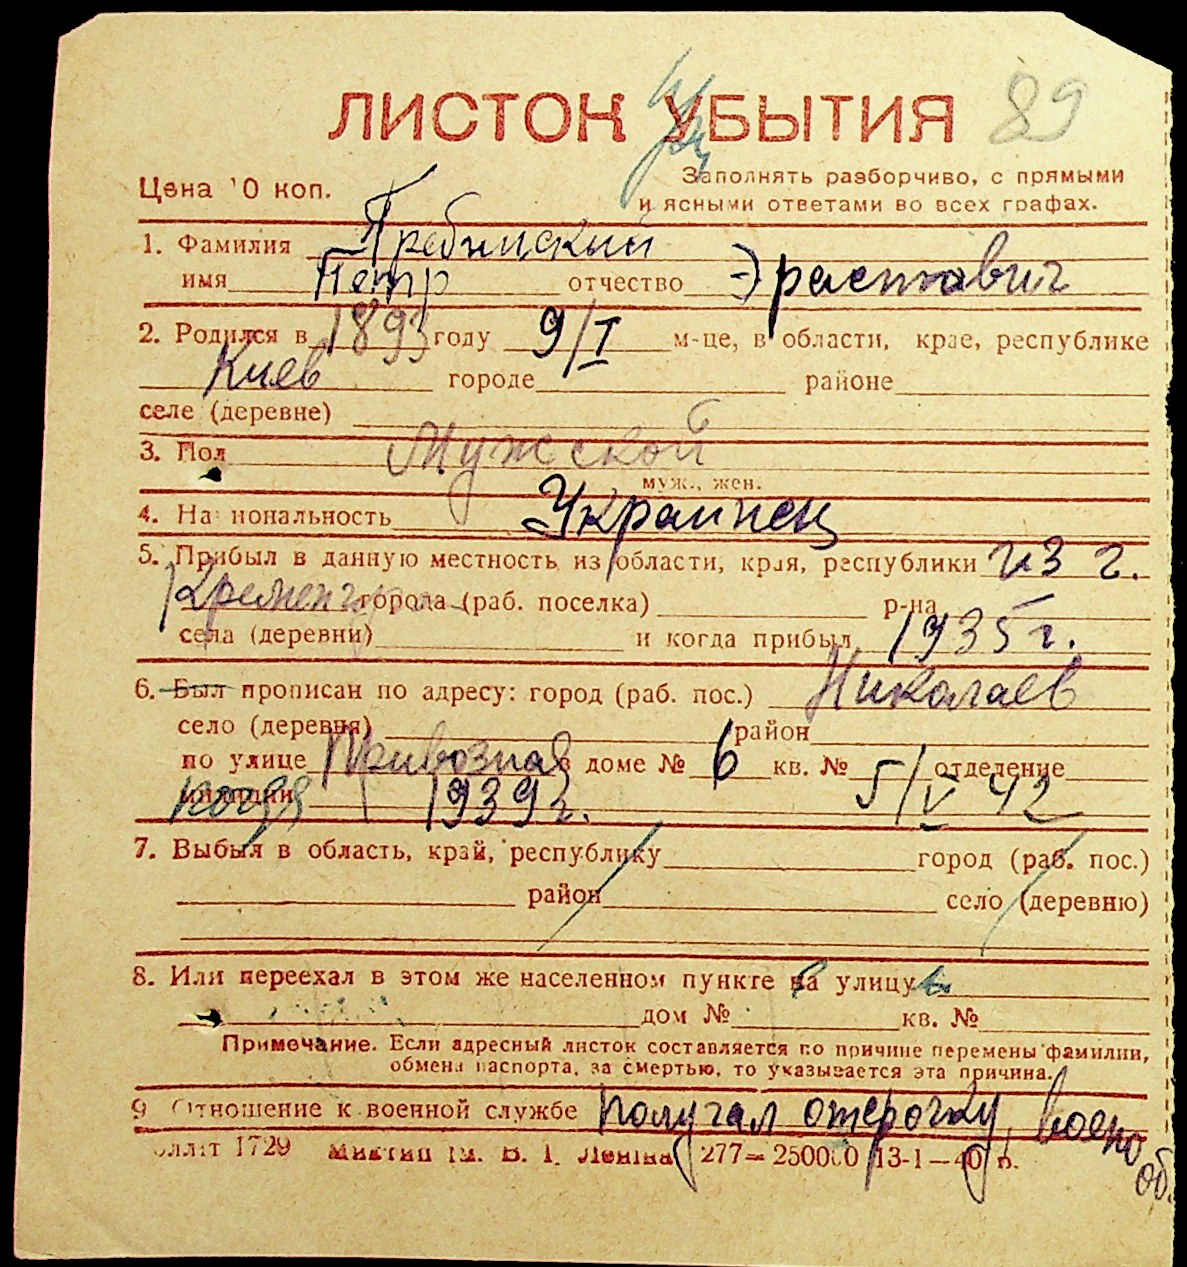 ЛИСТОК УБЫТИЯ 89
Цена 10 коп.
Заполнять разборчиво, с прямыми
и ясными ответами во всех графах.
1. Фамилия Гребинский
имя Петр отчество Эрастович
2. Родился в 1893 году 9/I м-це, в области, крае, республике
Киев городе районе
селе (деревне)
3. Пол Мужской
муж., жен.
4. Национальность Украинец
5. Прибыл в данную местность из области, края, республики из г.
Кременчуга города (раб. поселка) р-на
села (деревни) и когда прибыл 1935 г.
6. Был прописан по адресу: город (раб. пос.) Николаев
село (деревня) район
по улице Привозная в доме № 6 кв. № отделение
милиции когда 1939 г. 5/V 42
7. Выбыл в область, край, республику город (раб. пос.)
район село (деревню)
8. Или переехал в этом же населенном пункте на улицу
дом № кв. №
Примечание. Если адресный листок составляется по причине перемены фамилии,
обмена паспорта, за смертью, то указывается эта причина.
9 Отношение к военной службе получал отсрочку, воено
об.
1729 277—250000 13-1—40 р.